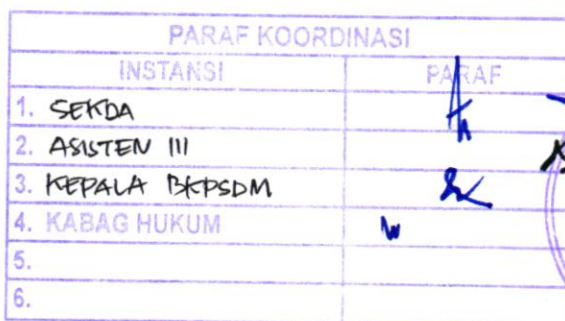 PARAF KOORDINASI
INSTANSI PARAF
1. SEKDA
2. ASISTEN III
3. KEPALA BKPSDM
4. KABAG HUKUM
5.
6.